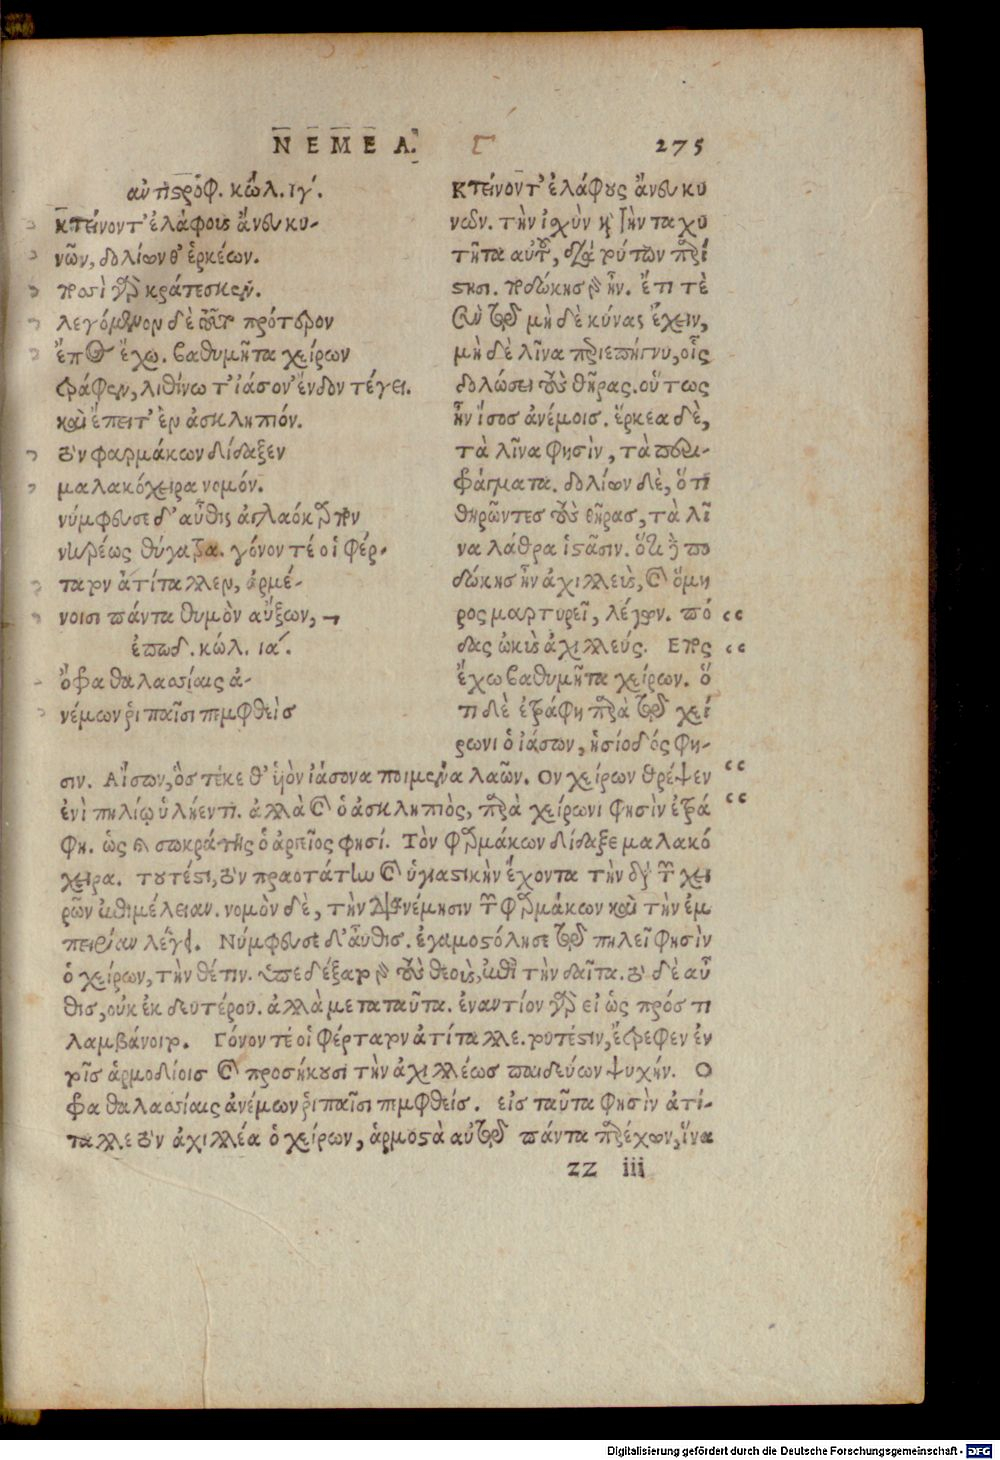 ΝΕΜΕΑ. Γ 275
ἀντιστρόφ. κώλ. ιγʹ.
κτείνοντ' ἐλάφους ἄνευ κυ-
νῶν, δολίων θ' ἑρκέων.
ποσὶ γὰρ κράτεσκεν.
λεγόμενον δὲ τοῦτο πρότερον
ἔπος ἔχω. βαθυμῆτα χείρων
τράφεν, λιθίνω τ' ἰάσον' ἔνδον τέγει.
καὶ ἔπειτ' ἐν ἀσκληπιόν.
τὸν φαρμάκων δίδαξεν
μαλακόχειρα νομόν.
νύμφευσε δ' αὖθις ἀγλαόκαρπον
νηρέως θύγατρα. γόνον τέ οἱ φέρ-
τατον ἀτίταλλεν, ἀρμέ-
νοισι πάντα θυμὸν αὔξων,
ἐπωδ. κώλ. ιαʹ.
ὄφρα θαλασσίαις ἀ-
νέμων ῥιπαῖσι πεμφθεὶς
Κτείνοντ' ἐλάφους ἄνευ κυ
νῶν. τὴν ἰσχὺν καὶ τὴν ταχυ
τῆτα αὐτοῦ, διὰ τούτων παρί
στησι. ποδώκης γὰρ ἦν. ἔτι τὲ
σὺν τῷ μὴ δὲ κύνας ἔχειν,
μὴ δὲ λῖνα περιεπήγνυ, οἷς
δολώσει τοὺς θῆρας. οὕτως
ἦν ἴσος ἀνέμοις. ἕρκεα δὲ,
τὰ λῖνα φησὶν, τὰ περι-
φράγματα. δολίων δὲ, ὅτι
θηρῶντες τοὺς θῆρας, τὰ λῖ
να λάθρα ἱστᾶσιν. ὅτι δὲ πο
δώκης ἦν ἀχιλλεὺς, καὶ ὅμη
ρος μαρτυρεῖ, λέγων. πό
δας ὠκὺς ἀχιλλεύς. Ἔπος
ἔχω βαθυμῆτα χείρων. ὅ
τι δὲ ἐτράφη παρὰ τῷ χεί
ρωνι ὁ ἰάσων, ἡσίοδός φη-
σιν. Αἴσων, ὃς τέκε θ' υἱὸν ἰάσονα ποιμένα λαῶν. Ὃν χείρων θρέψεν
ἐνὶ πηλίῳ ὑλήεντι. ἀλλὰ καὶ ὁ ἀσκληπιὸς, παρὰ χείρωνι φησὶν ἐτρά
φη. ὡς καὶ σωκράτης ὁ ἀργεῖος φησί. Τὸν φαρμάκων δίδαξε μαλακό
χειρα. τουτέστι, τὸν πραοτάτην καὶ ὑγιαστικὴν ἔχοντα τὴν διὰ τῶν χει
ρῶν ἐπιμέλειαν. νομὸν δὲ, τὴν διανέμησιν τῶν φαρμάκων καὶ τὴν ἐμ
πειρίαν λέγει. Νύμφευσε δ' αὖθις. ἐγαμοστόλησε τῷ πηλεῖ φησὶν
ὁ χείρων, τὴν θέτιν. ὑπεδέξατο γὰρ τοὺς θεοὺς, ἐπὶ τὴν δαῖτα. τὸ δὲ αὖ
θις, οὐκ ἐκ δευτέρου. ἀλλὰ μετα ταῦτα. ἐναντίον γὰρ εἰ ὡς πρός τι
λαμβάνοιτο. Γόνον τέ οἱ φέρτατον ἀτίταλλε. τουτέστιν, ἔτρεφεν ἐν
τοῖς ἁρμοδίοις καὶ προσήκουσι τὴν ἀχιλλέως παιδεύων ψυχήν. Ὄ
φρα θαλασσίαις ἀνέμων ῥιπαῖσι πεμφθείς. εἰς ταῦτα φησὶν ἀτί-
ταλλε τὸν ἀχιλλέα ὁ χείρων, ἁρμοστὰ αὐτῷ πάντα παρέχων, ἵνα
zz iii
Digitalisierung gefördert durch die Deutsche Forschungsgemeinschaft - DFG